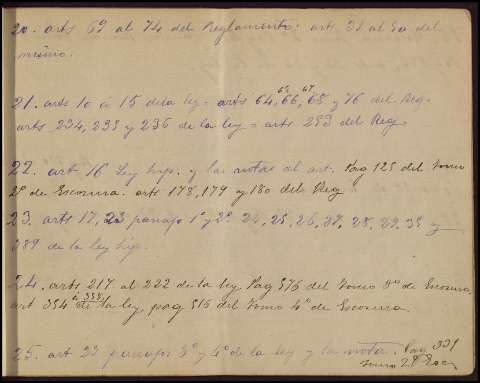 20. arts 69 al 74 del Reglamento; arts 39 al 50 del
mismo.
21. arts 10 á 15 de la ley = arts 64, 65, 66, 67, 68 y 76 del Reg.
arts 234, 235 y 236 de la ley = arts 293 del Reg.
22. art. 16 Ley hip. y las notas al art. Pag 125 del Tomo
2º de Escosura. arts 178, 179 y 180 del Reg
23. arts 17, 23 parrafo 1º y 2º 24, 25, 26, 27, 28, 29, 35 y
389 de la ley hip.
24. arts 217 al 222 de la ley Pag 576 del Tomo de Escosura.
art 354 á 358 de la ley, pag 515 del Tomo 4º de Escosura.
25. art 23 parrafos 3º y 4º de la ley y la nota. Pag 331
Tomo 2º Esc